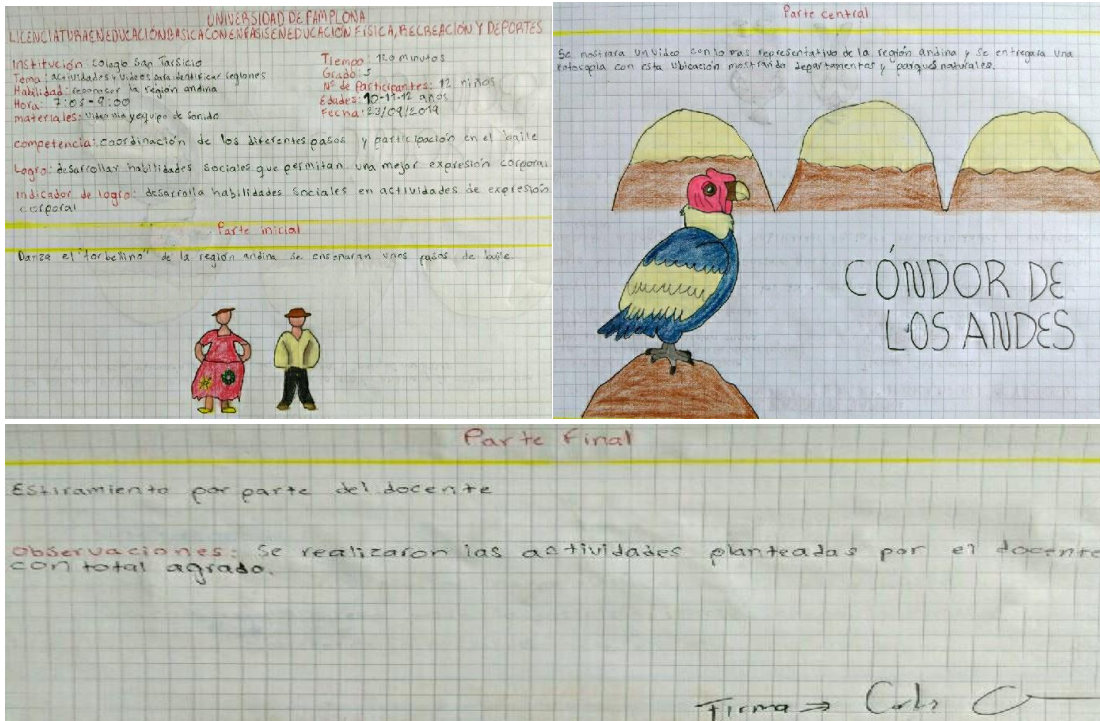 UNIVERSIDAD DE PAMPLONA
LICENCIATURA EN EDUCACIÓN BASICA CON ENFASIS EN EDUCACIÓN FISICA, RECREACIÓN Y DEPORTES
Institución: Colegio San Tarsicio
Tema: actividades y videos para identificar regiones
Habilidad: reconocer la región andina
Hora: 7:05-9:00
materiales: video vin y equipo de sonido
Tiempo: 120 minutos
Grado: 5
N° de Participantes: 12 niños
Edades: 10-11-12 años
Fecha: 23/09/2019
competencia: coordinación de los diferentes pasos y participación en el baile
Logro: desarrollar habilidades sociales que permitan una mejor expresión corporal
Indicador de logro: desarrolla habilidades sociales en actividades de expresión
corporal
Parte inicial
Danza el "torbellino" de la región andina se enseñaran unos pasos de baile
Parte central
Se mostrara un video con lo mas representativo de la región andina y se entregara una
fotocopia con esta ubicación mostrando departamentos y parques naturales.
CÓNDOR DE
LOS ANDES
Parte Final
Estiramiento por parte del docente
Observaciones: Se realizaron las actividades planteadas por el docente
con total agrado.
Firma →